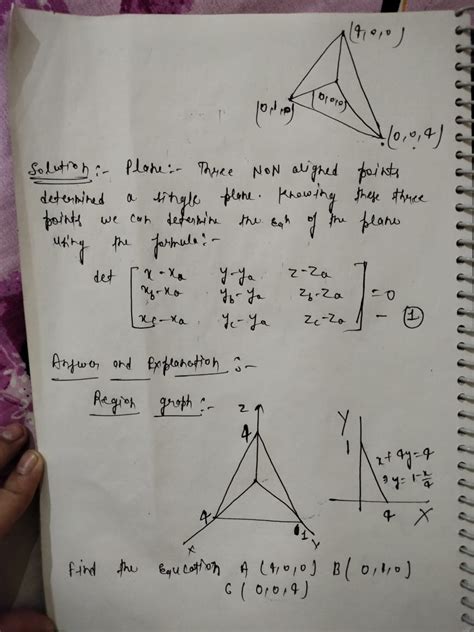 (4,0,0)
(0,1,0)
(0,0,0)
(0,0,4)
Solution:- Plane:- Three NON aligned points
determined a single plane. Knowing these three
points we can determine the eqn of the plane
using the formula:-
det [ x-xa y-ya z-za
xb-xa yb-ya zb-za ] =0
xc-xa yc-ya zc-za - ①
Answer and Explanation:-
Region graph:-
Z
4
4
1
X
Y
Y
1
x+4y=4
y=1-x/4
4
X
Find the Equcation A (4,0,0) B(0,1,0)
C (0,0,4)